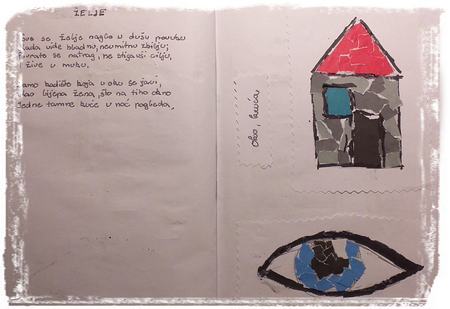 ŽELJE
Sve se želje naglo u dušu povuku
Kada vide hladnu, neumitnu zbilju;
Povrate se natrag, ne stigavši cilju,
I žive u muku.
Samo koja u oku se javi,
Kao lijepa žena, što na tiho okno
Jedne tamne kuće u noć pogleda,
Oko, kuća,